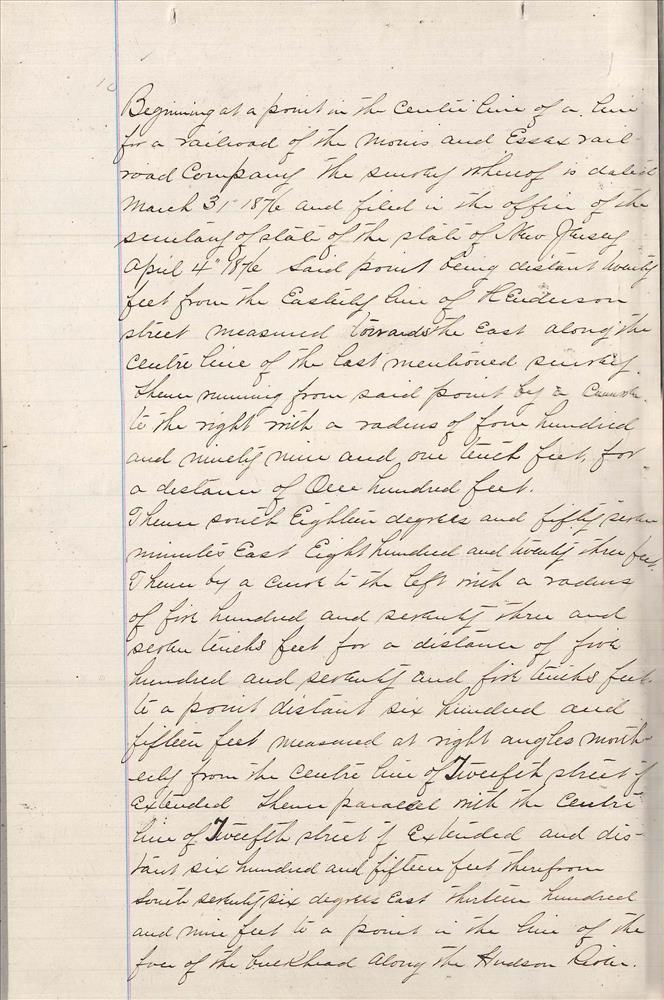 Beginning at a point in the centre line of a line
for a railroad of the Morris and Essex rail
road Company the survey whereof is dated
March 31 1876 and filed in the office of the
secretary of state of the state of New Jersey
April 4" 1876 said point being distant twenty
feet from the Easterly line of Henderson
street measured towards the East along the
centre line of the last mentioned survey.
Thence running from said point by a curve
to the right with a radius of four hundred
and ninety nine and one tenth feet, for
a distance of One hundred feet.
Thence south Eighteen degrees and fifty seven
minutes East Eight hundred and twenty three feet.
Thence by a curve to the left with a radius
of five hundred and seventy three and
seven tenths feet for a distance of five
hundred and seventy and five tenths feet
to a point distant six hundred and
fifteen feet measured at right angles north-
erly from the centre line of Twelfth street if
extended thence parallel with the centre
line of Twelfth street if extended and dis-
tant six hundred and fifteen feet therefrom
South seventy six degrees East thirteen hundred
and nine feet to a point in the line of the
face of the bulkhead along the Hudson River.